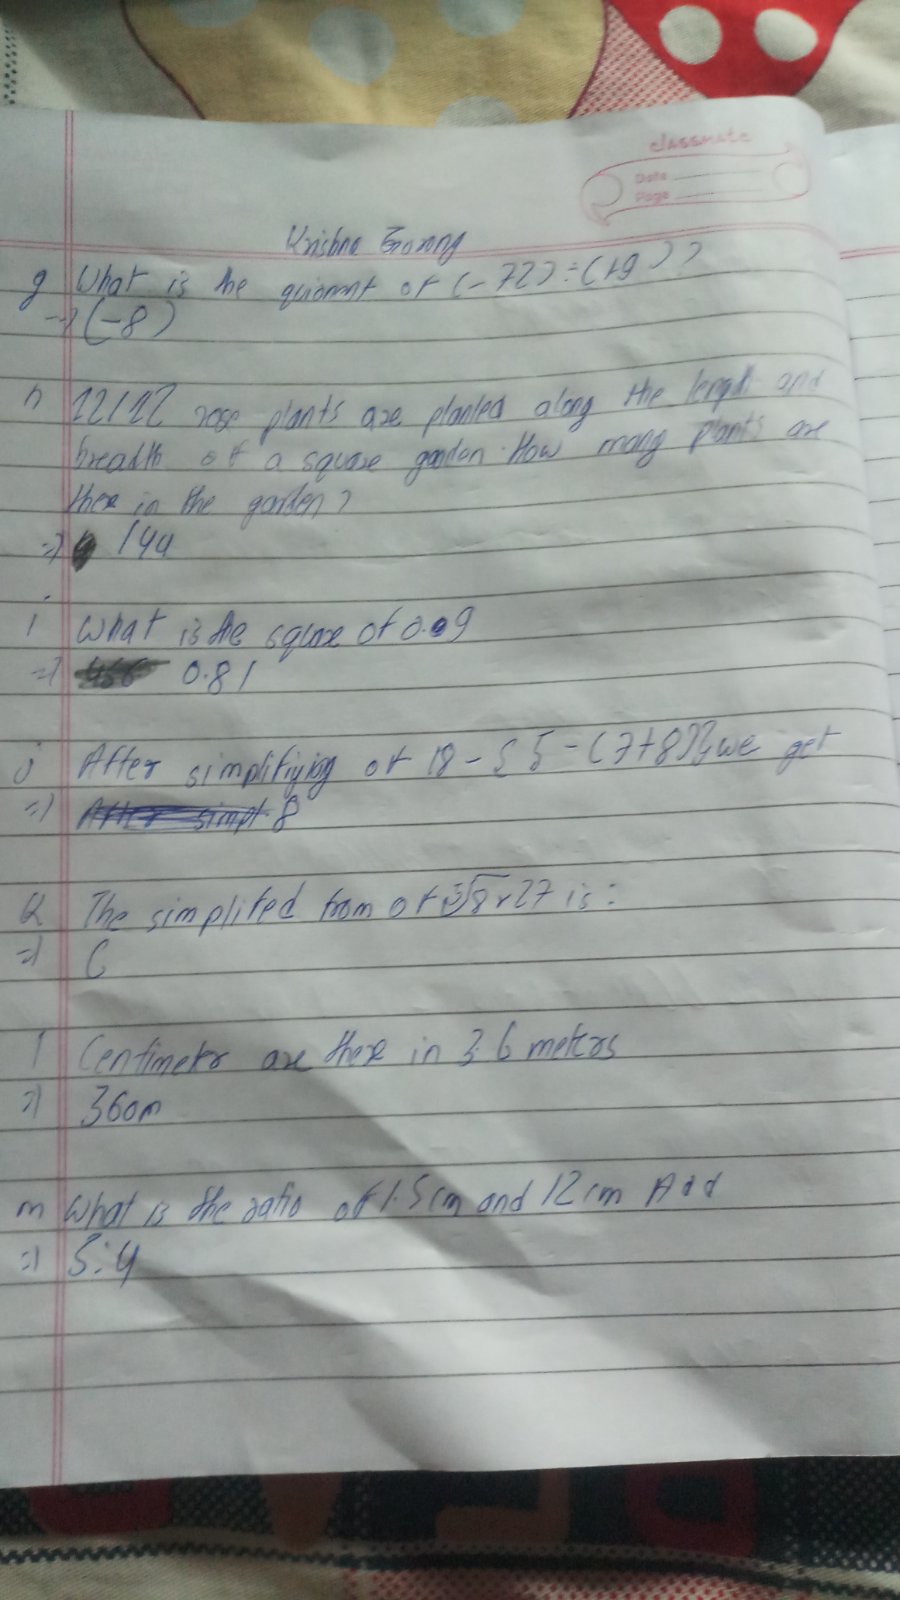 classmate
Date
Page
Krishna
g What is the quiomnt of (-72) ÷ (+9)?
=> (-8)
h 12/12 rose plants are planted along the length and
breadth of a square garden. How many plants are
there in the garden?
=> 144
i What is the square of 0.09
=> 0.81
j After simplifiying of 18 - {5 - (7+8)} we get
=> 8
k The simplifed from of ∛8×27 is:
=> 6
l Centimeter are there in 3.6 meters
=> 360m
m What is the ratio of 1.5cm and 12cm
=> 5:4